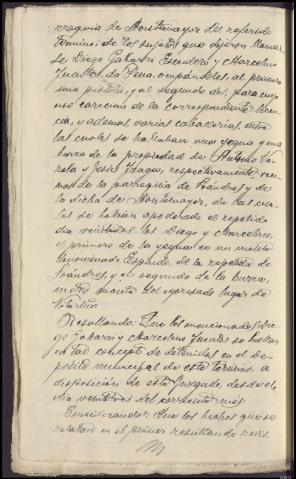 rroquia de Montemayor del referido
término, de los sujetos que dijeron llamar-
se Diego Gabarri Escudero y Marcelino
Fuentes de Pena, ocupándoles, al primero
una pistola, y al segundo dos, para cuyo
uso carecían de la correspondiente licen-
cia, y además varias caballerías, entre
las cuales se hallaban una yegua y una
burra de la propiedad de Antonio Va-
rela y José respectivamente veci-
nos de la parroquia de Soandres y de
la dicha de Montemayor, de las cua-
les se habían apoderado el repetido
día veintidós los Diego y Marcelino,
el primero de la yegua en un monte
denominado de la repetida de
Soandres, y el segundo de la burra,
en monte del expresado lugar de
Resultando: Que los mencionados Die-
go Gabarri y Marcelino Fuentes se hallan
en tal concepto de detenidos en el De-
pósito municipal de este término a
disposición de este Juzgado, desde el
día veintitrés del corriente mes.
Considerando: Que los hechos que se
relatan en el primer resultando revis-